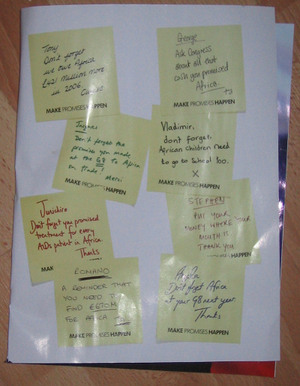 Tony
Don't forget
we owe Africa
£421 million more
in 2006
MAKE PROMISES HAPPEN
George
Ask Congress
about all that
cash you promised
Africa.
MAKE PROMISES HAPPEN
Jacques
Don't forget the
promise you made
at the G8 To Africa
on Trade! Merci
MAKE PROMISES HAPPEN
Vladimir,
don't forget:
African children need
to go to School too.
X
MAKE PROMISES HAPPEN
Junichiro
Don't forget you promised
treatment for every
AIDs patient in Africa.
Thanks
MAK
STEPHEN
PUT YOUR
MONEY WHERE YOUR
MOUTH IS
THANK YOU
ROMANO
A REMINDER THAT
YOU NEED TO
FIND
FOR AFRICA
MAKE PROMISES HAPPEN
Don't forget Africa
at your G8 next year
Thanks
MAKE PROMISES HAPPEN